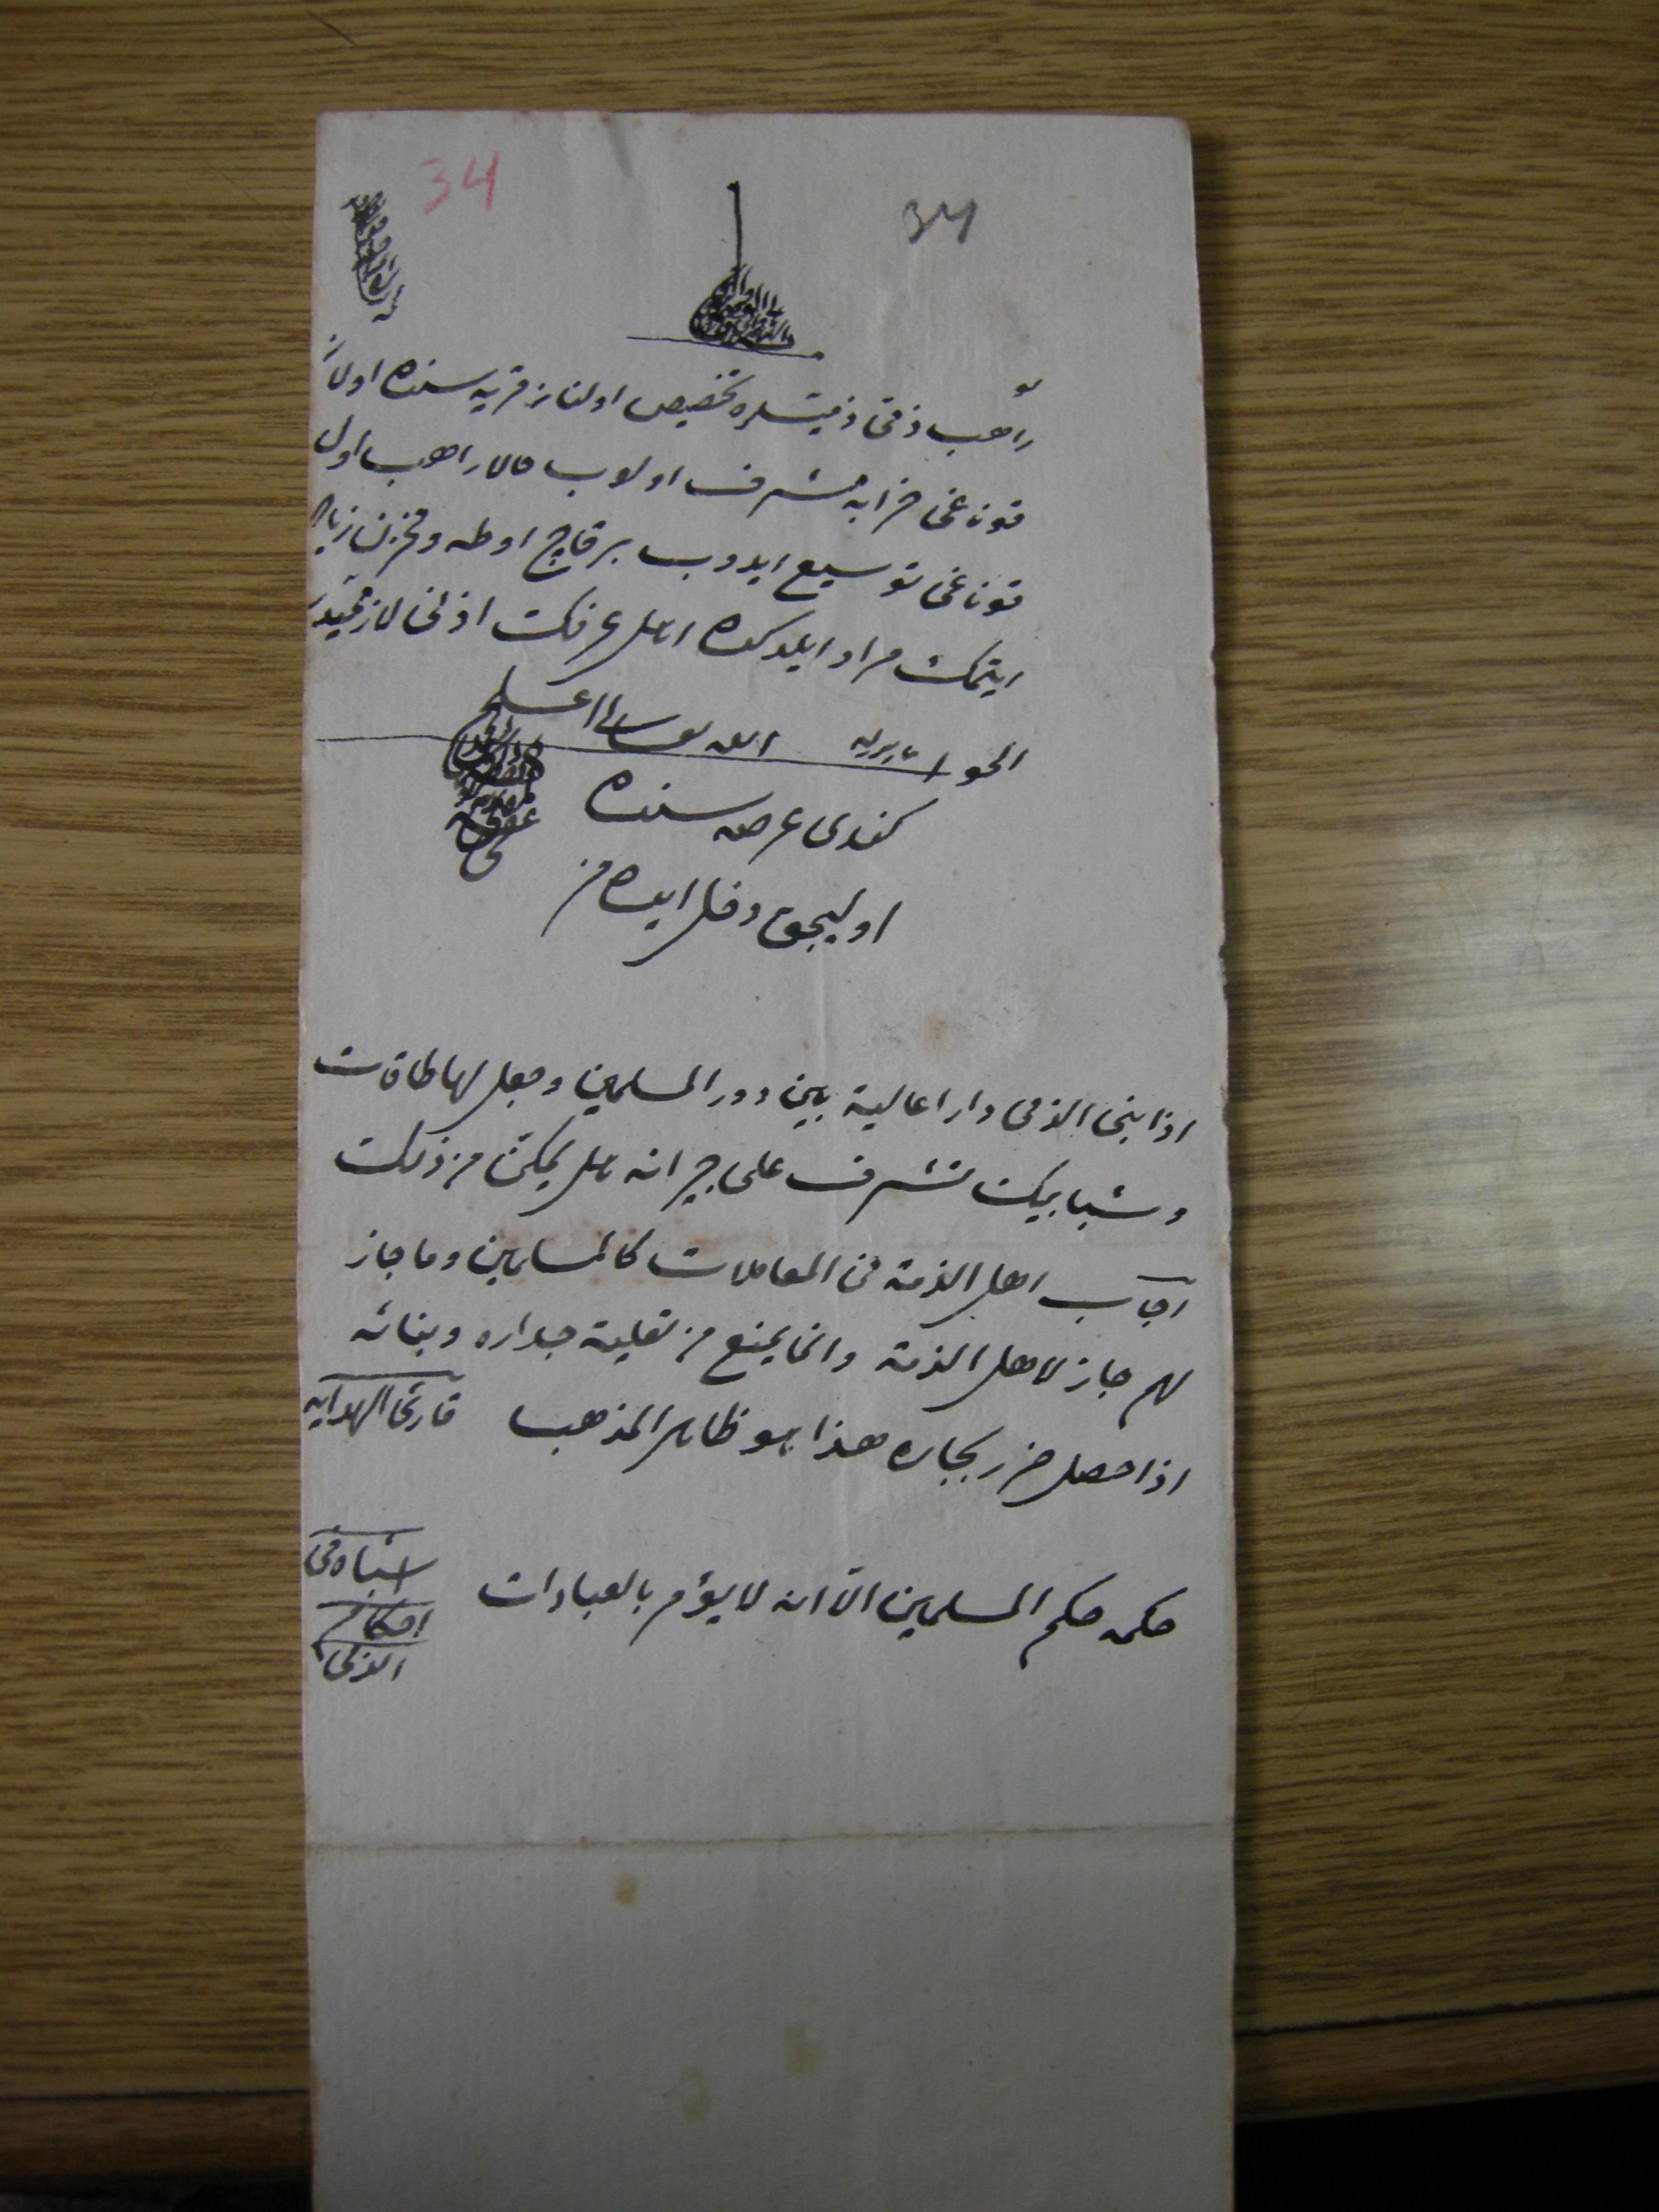 34
34
بو
راهب ذمی ذمیتلره تخصیص اولنان قریه سنده اولان
قوناغی خرابه مشرف اولوب حالا راهب اول
قوناغی توسیع ایدوب بر قاچ اوطه و مخزن زیاده
ایتمك مراد ایلدكده اهل عرفك اذنی لازمیدر
الجواب الله تعالی اعلم
كندی عرصه سنده
اولیجق دخل ایده مز
اذا بنی الذمی دارا عالیة بین دور المسلمین وجعل لها طاقات
وشبابیك تشرف علی جیرانه هل یمكن من ذلك
اجاب اهل الذمة فی المعاملات كالمسلمین وما جاز
لهم جاز لاهل الذمة وانما یمنع من تعلیة جداره وبنائه
اذا حصل ضرر بجاره هذا هو ظاهر المذهب قارئ الهدایه
حكمه حكم المسلمین الا انه لا یؤمر بالعبادات
اشباه فی
احكام
الذمی